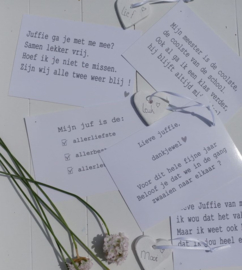 Juffie ga je met me mee?
Samen lekker vrij.
Hoef ik je niet te missen.
Zijn wij alle twee weer blij!
Mijn meester is de coolste,
de coolste van de school
Ook al ga ik een klas verder,
hij blijft altijd mijn
Mijn juf is de:
allerliefste
Lieve juffie,
dankjewel
Voor dit hele fijne jaar
Beloof je dat we in de gang
zwaaien naar elkaar ?
Juffie van
ik wou dat het
Maar ik weet ook
dat is jou heel